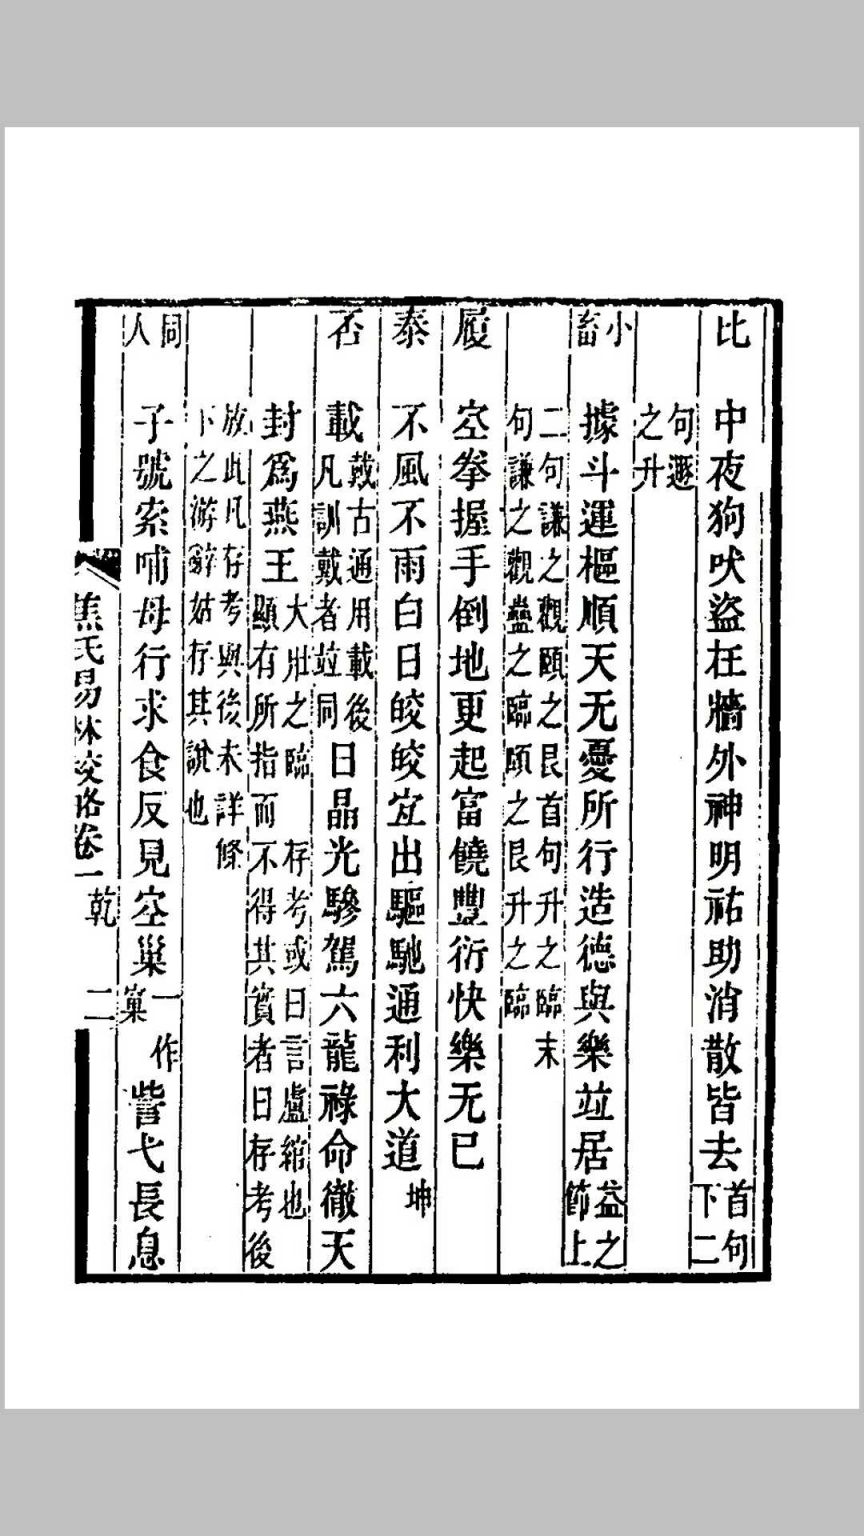 比　中夜狗吠盜在牆外神明祐助消散皆去首句下二
句遯之升
小畜　據斗運樞順天无憂所行造德與樂竝居益之節上
二句謙之觀頤之艮首句升之臨末句謙之觀蠱之臨頤之艮升之臨
履　空拳握手倒地更起富饒豐衍快樂无已
泰　不風不雨白日皎皎宜出驅馳通利大道坤
否　載戴古通用載後凡訓戴者竝同日晶光驂駕六龍祿命徹天
封爲燕王大壯之臨　存考或曰言盧綰也顯有所指而不得其實者曰存考後
放此凡存考與後未詳條下之游辭姑存其說也
同人　子號索哺母行求食反見空巢一作窠訾弋長息
焦氏易林校略卷一　乾　二